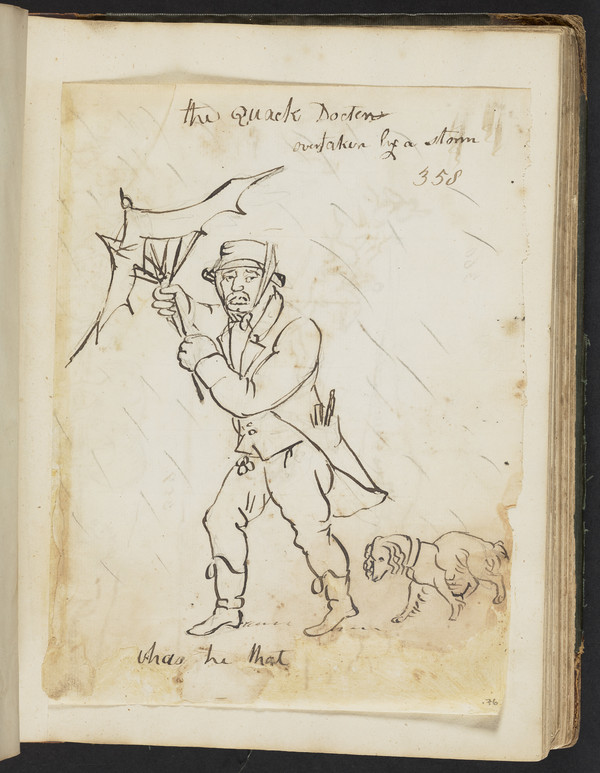 the Quack Doctor
overtaken by a storm
358
he that
.76